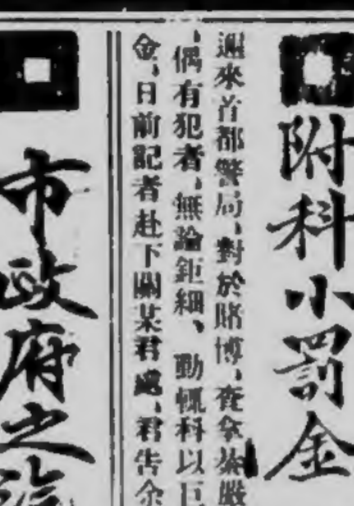 附科小罰金
邇來首都警局、對於賭博、查拿綦嚴
、偶有犯者、無論鉅細、動輒科以巨
金、日前記者赴下關某君處、君告余
市政府之